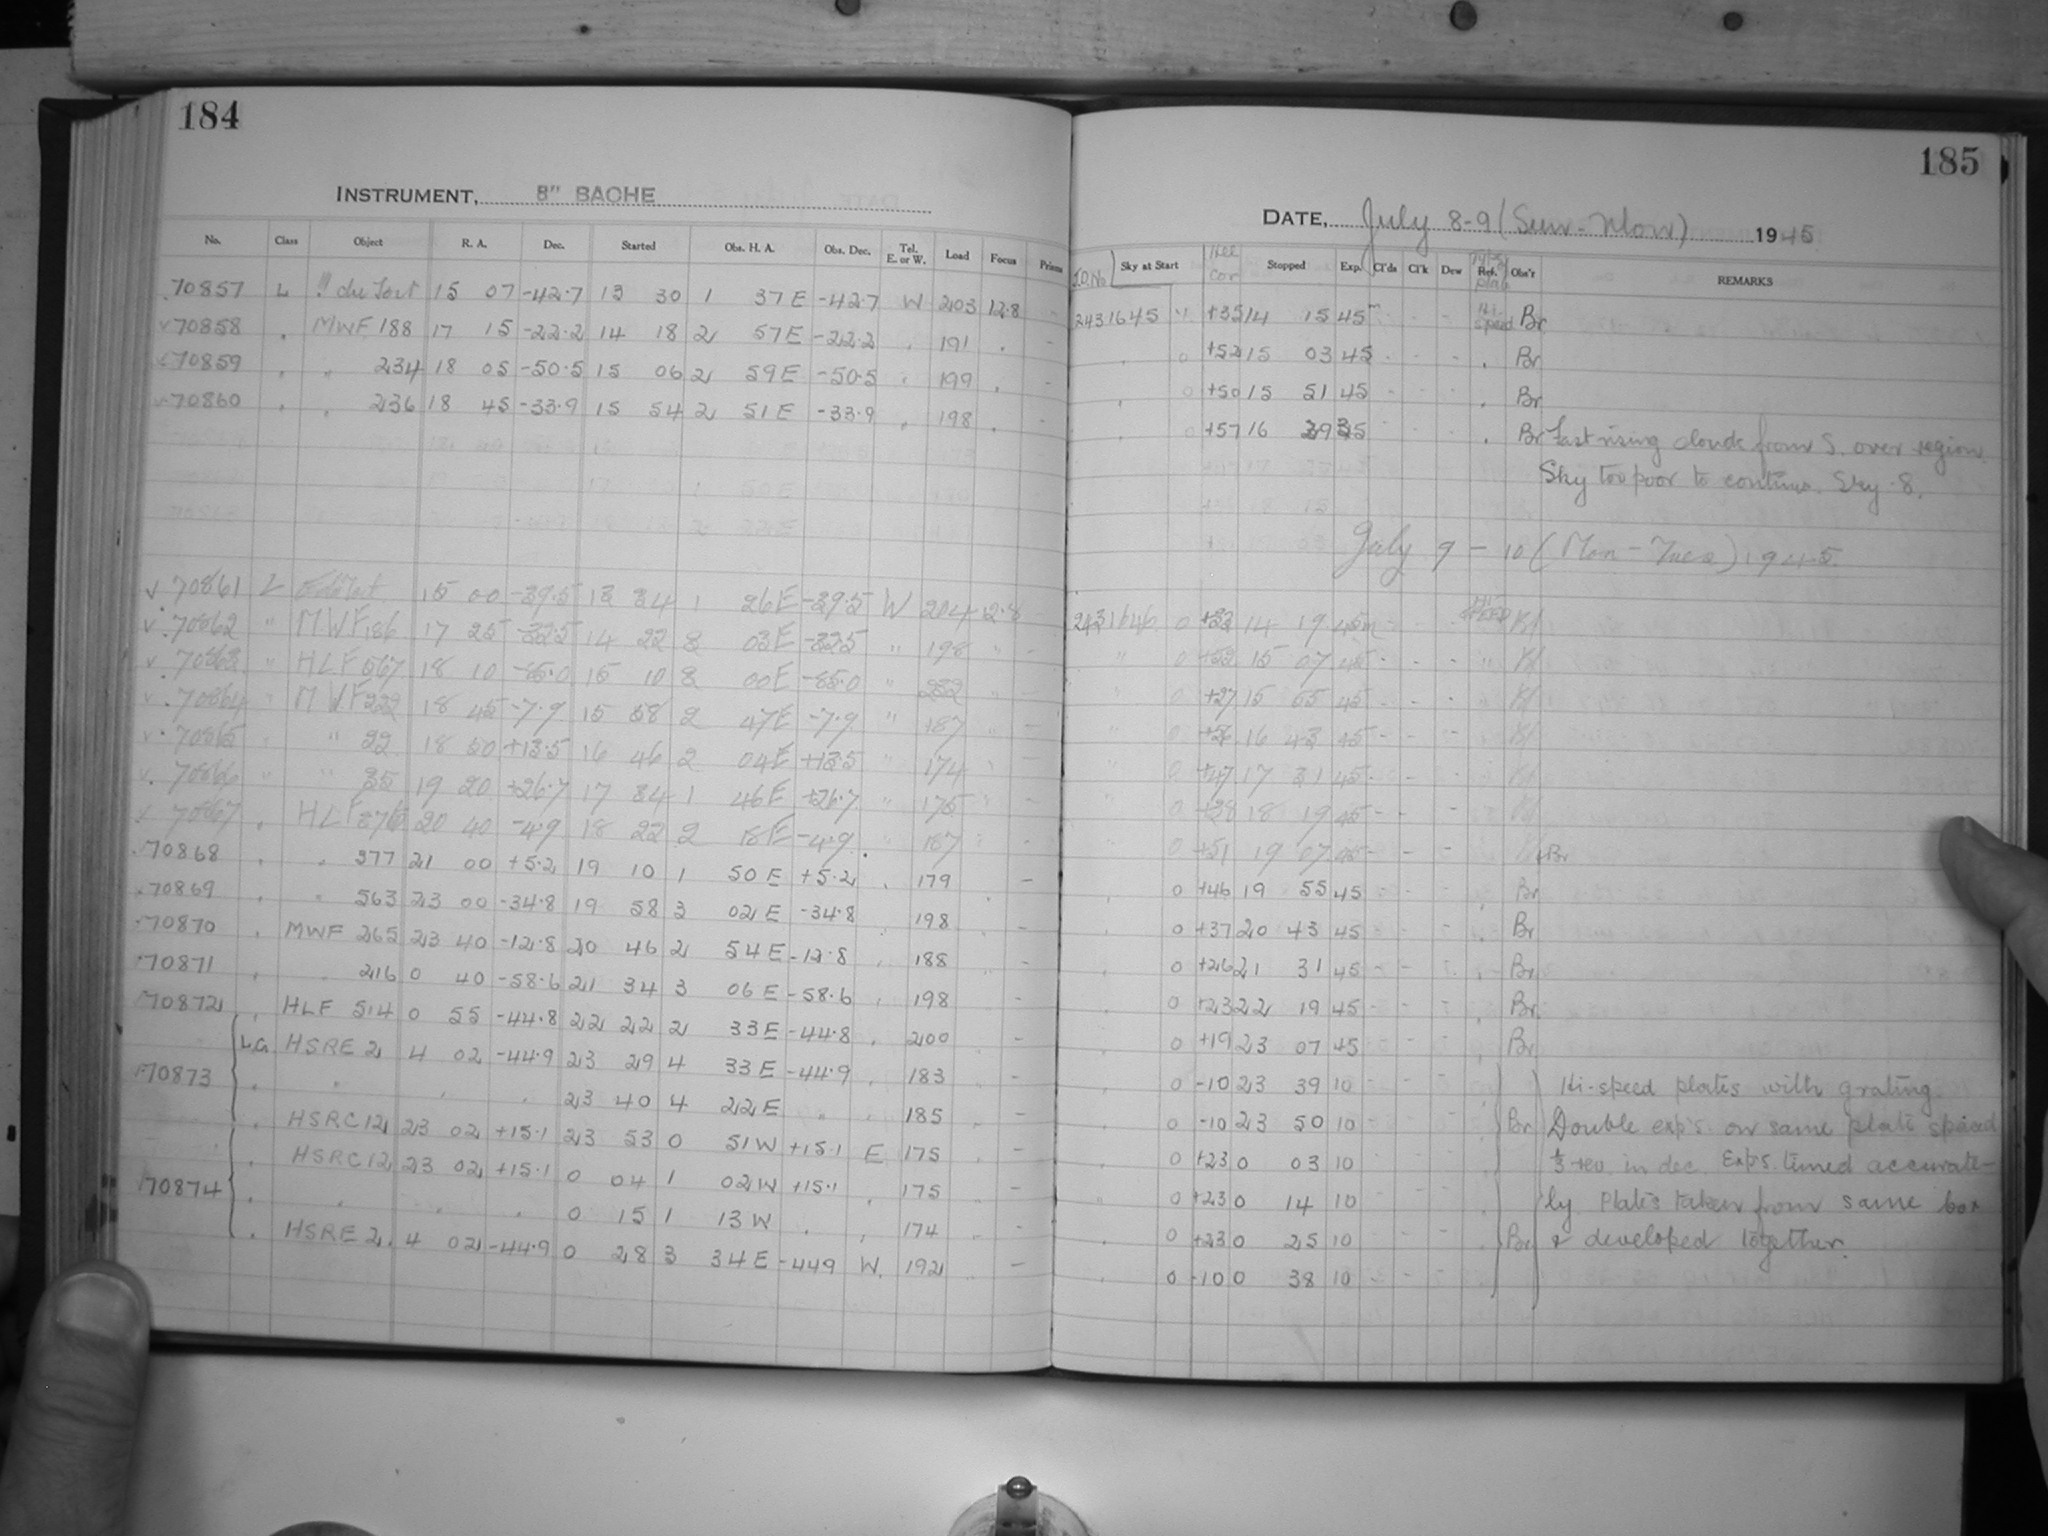 184
INSTRUMENT, 8" BACHE
No. Class Object R. A. Dec. Started Obs. H. A. Obs. Dec. Tel. E. or W. Load Focus Prisms
70857 L 15 07 -42.7 13 30 1 37 E -42.7 W 203 12.8 -
70858 MWF 188 17 15 -22.2 14 18 2 57 E -22.2 191 -
70859 " 234 18 05 -50.5 15 06 2 59 E -50.5 199 -
70860 " 236 18 45 -33.9 15 54 2 51 E -33.9 198 -
70861 L 15 00 -39.5 13 34 1 26 E -39.5 W 204 12.8 -
70862 " MWF 186 17 25 -32.5 14 22 3 03 E -32.5 " 198 " -
70863 " HLF 567 18 10 15 10 3 00 E "
70864 " MWF 222 18 45 -7.9 15 58 2 47 E -7.9 " 187 " -
70865 " 22 18 50 +13.5 16 46 2 04 E +13.5 " 174 -
70866 " " 35 19 20 +26.7 17 34 1 46 E +26.7 " 175 " -
70867 HLF 376 20 40 -4.9 18 22 2 18 E -4.9 187 -
70868 377 21 00 +5.2 19 10 1 50 E +5.2 179 -
70869 563 23 00 -34.8 19 58 3 02 E -34.8 198 -
70870 MWF 265 23 40 -12.8 20 46 2 54 E -12.8 188 -
70871 216 0 40 -58.6 21 34 3 06 E -58.6 198 -
70872 HLF 514 0 55 -44.8 22 22 2 33 E -44.8 200 -
L.G. HSRE 2 4 02 -44.9 23 29 4 33 E -44.9 183 -
70873 23 40 4 22 E 185 -
HSRC 12 23 02 +15.1 23 53 0 51 W +15.1 E 175 -
HSRC 12 23 02 +15.1 0 04 1 02 W +15.1 175 -
70874 0 15 1 13 W 174 -
HSRE 2 4 02 -44.9 0 28 3 34 E -449 W. 192 -
185
DATE, July 8-9 (Sun-Mon) 1945
J.D. No. Sky at Start Stopped Exp. Cl'ds Cl'k Dew Ref. Obs'r REMARKS
2431645 +35 14 15 45m - - - Hi-speed Br
0 +52 15 03 45 - - - Br
0 +50 15 51 45 - - - Br
0 +57 16 39 35 - - - Br Fast rising clouds from S. over region.
Sky too poor to continue. Sky 8.
July 9 - 10 (Mon - Tues) 1945
2431646 0 +32 14 19 45m - - -
" 0 +52 15 07 45 - - - "
" 0 +27 15 55 45 - - - "
" 0 16 43 45 - - -
" 0 +47 17 31 45 - - -
" 0 +38 18 19 45 - - -
" 0 +51 19 07 45 - - - Br
0 +46 19 55 45 - - - Br
0 +37 20 43 45 - - - Br
0 +26 21 31 45 - - - Br
0 +23 22 19 45 - - - Br
0 +19 23 07 45 - - - Br
0 -10 23 39 10 - - - Hi-speed plates with grating.
0 -10 23 50 10 - - - Br Double exp's. on same plate spaced
0 +23 0 03 10 - - - 1/3 rev. in dec. Exp's. timed accurate-
0 +23 0 14 10 - - - ly. Plates taken from same box
0 +23 0 25 10 - - - Br & developed together.
0 -10 0 38 10 - - -